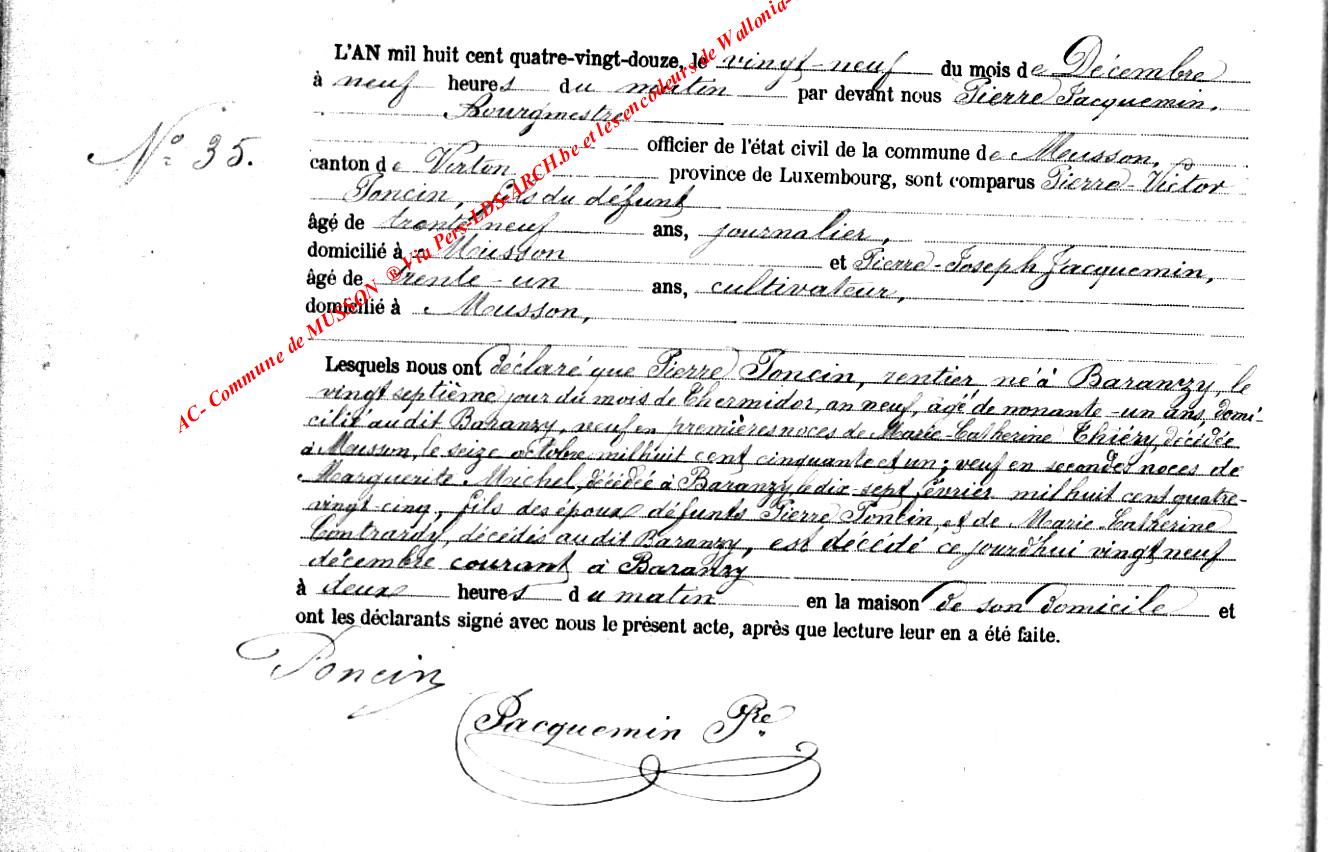 L'AN mil huit cent quatre-vingt-douze, le vingt-neuf du mois de Décembre
à neuf heures du matin par devant nous Pierre Jacquemin,
Bourgmestre
N° 35.
officier de l'état civil de la commune de Musson,
canton de Virton province de Luxembourg, sont comparus Pierre-Victor
Poncin, fils du défunt
âgé de trente neuf ans, journalier,
domicilié à Musson et Pierre-Joseph Jacquemin,
âgé de trente-un ans, cultivateur,
domicilié à Musson,
Lesquels nous ont déclaré que Pierre Poncin, rentier, né à Baranzy, le
vingt septième jour du mois de Thermidor, an neuf, âgé de nonante-un ans, domi-
cilié audit Baranzy, veuf en premières noces de Marie-Catherine Thiéry, décédée
à Musson, le seize octobre mil huit cent cinquante et un; veuf en secondes noces de
Marguerite Michel, décédée à Baranzy, le dix-sept février mil huit cent quatre-
vingt-cinq, fils des époux défunts Pierre Poncin, et de Marie-Catherine
Contrardy, décédés audit Baranzy, est décédé ce jourd'hui vingt neuf
décembre courant à Baranzy
à deux heures du matin en la maison de son domicile et
ont les déclarants signé avec nous le présent acte, après que lecture leur en a été faite.
Poncin
Jacquemin Pre
AC- Commune de MUSSON ® Via Pers-LDS-ARCH.be et les encodeurs de Wallonia-